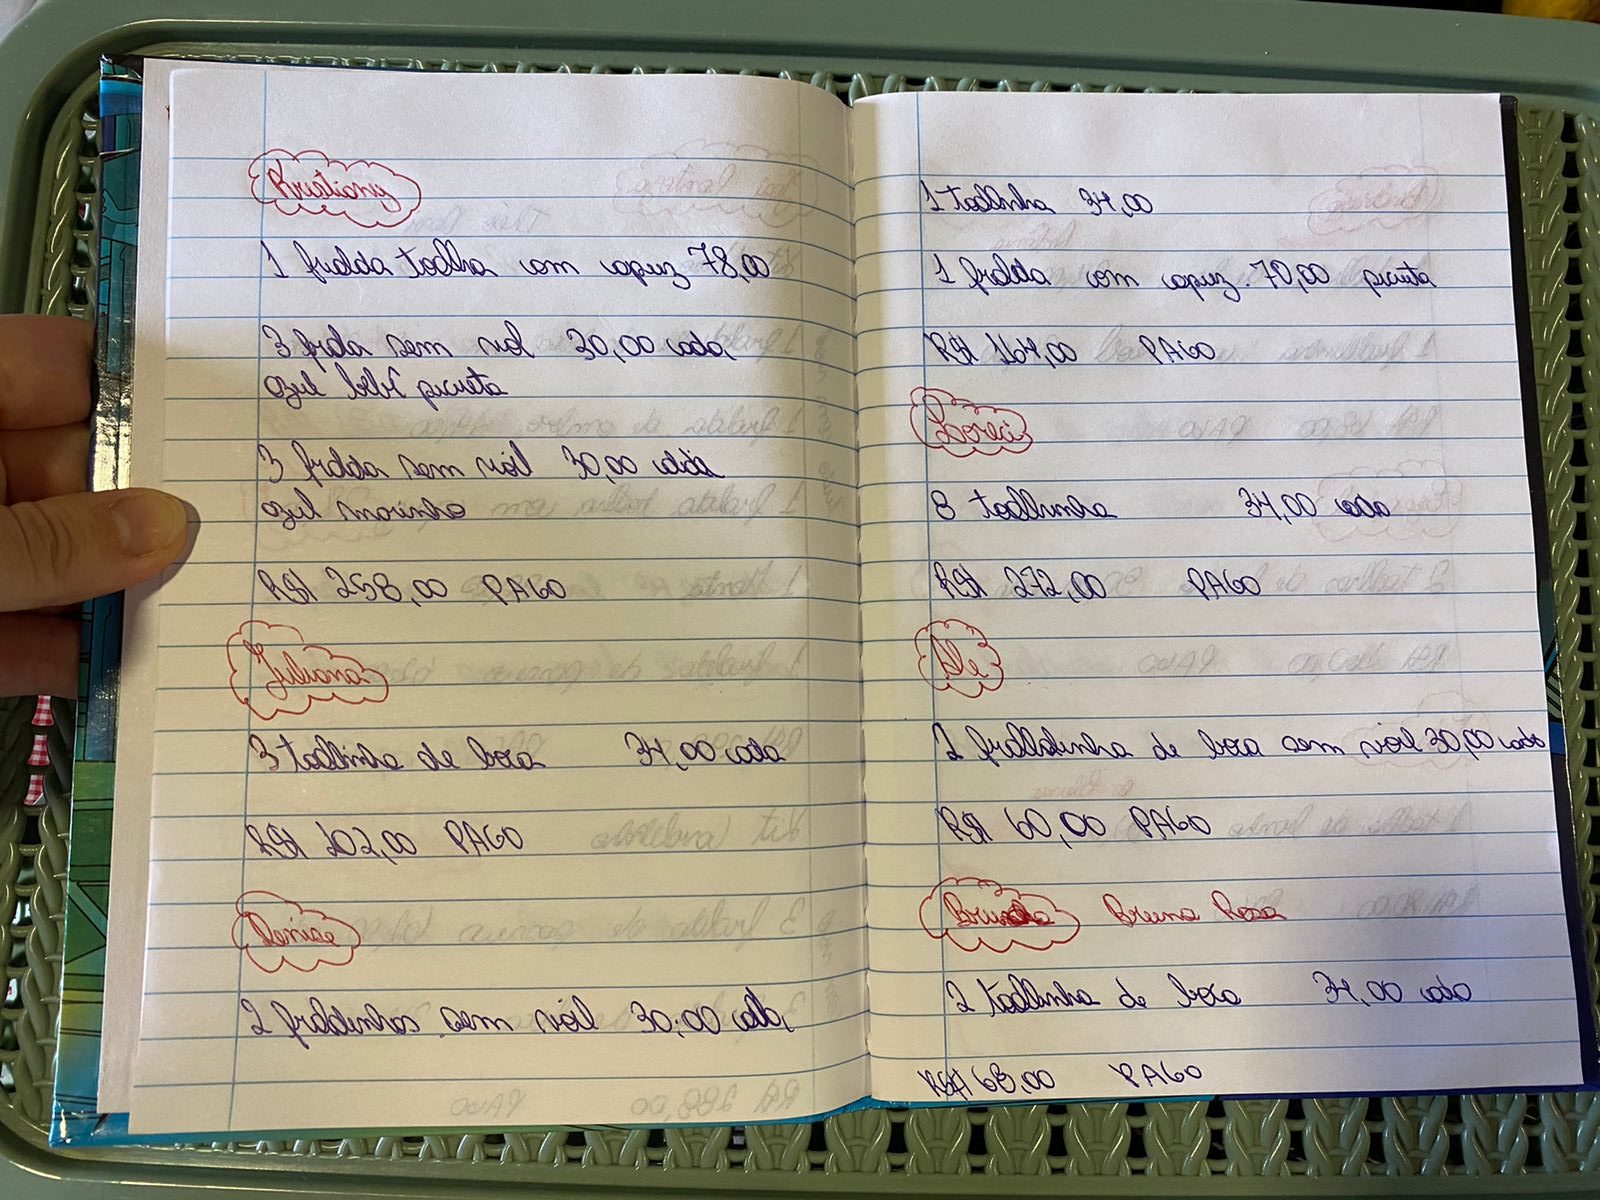 Kristiany
1 fralda toalha com capuz 78,00
3 frlda sem viól 30,00 cada
azul bebê picueta
3 fralda sem viól 30,00 cada
azul marinho
R$ 258,00 PAGO
Juliana
3 toallinha de boca 34,00 cada
R$ 102,00 PAGO
Denise
2 fraldinhas sem viól 30,00 cada
1 toallinha 34,00
1 fralda com capuz. 70,00 picueta
R$ 164,00 PAGO
8 toallinha 34,00 cada
R$ 272,00 PAGO
Ale
2 fralldinha de boca sem viól 30,00 cada
R$ 60,00 PAGO
Bruna Rosa
2 toallinha de boca 34,00 cada
R$ 68,00 PAGO